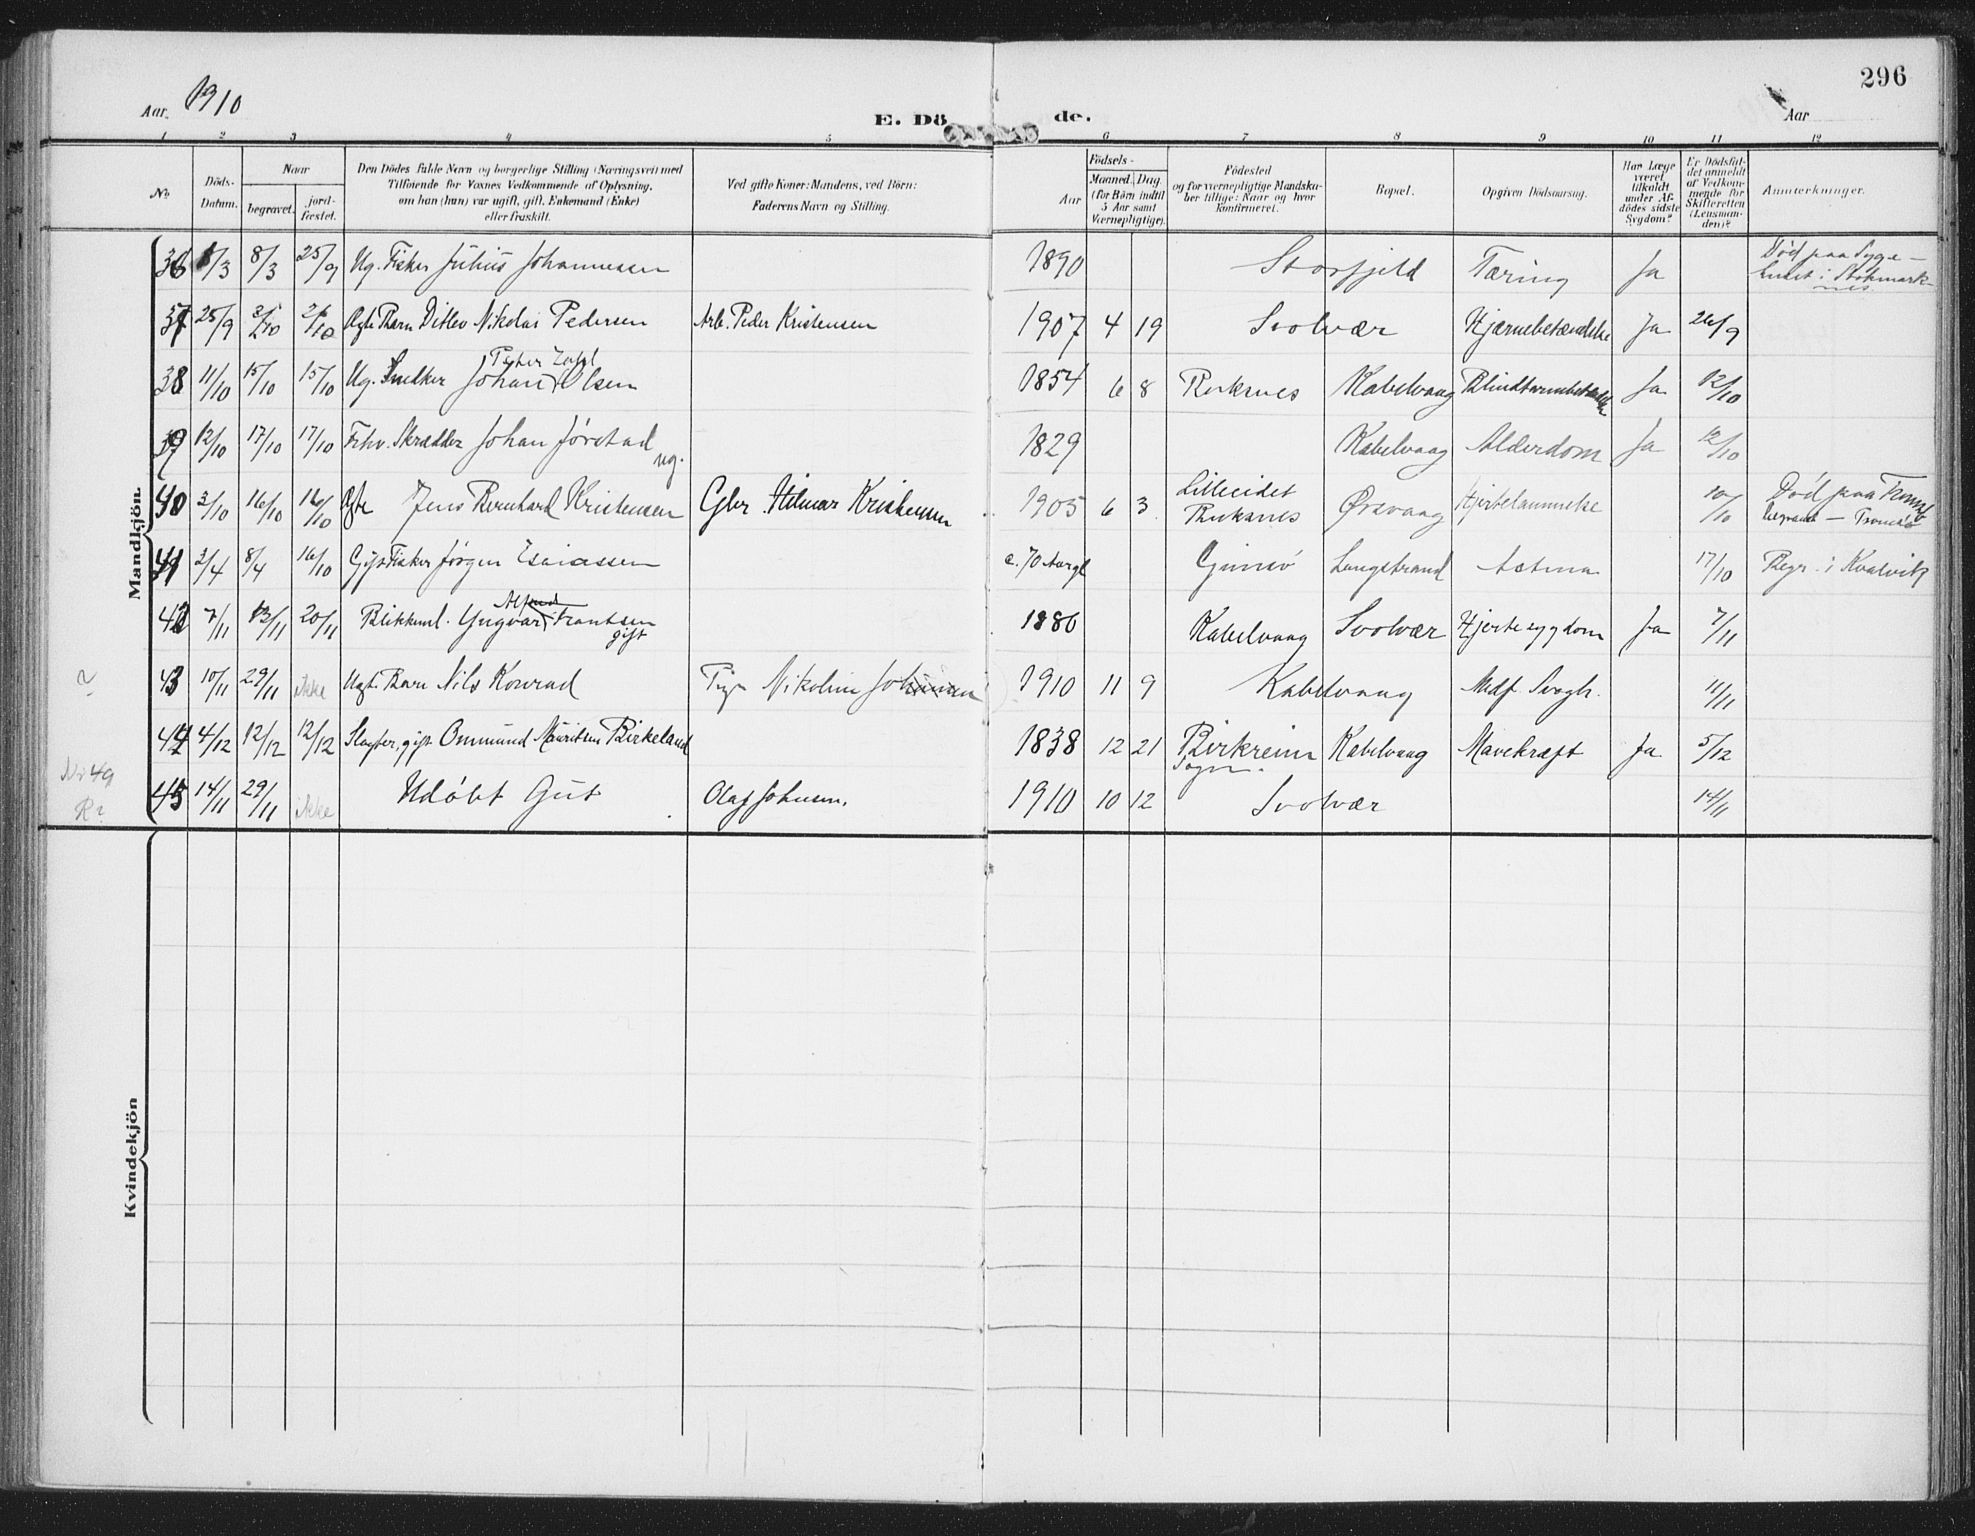 Aar 1910
E. Dö
de.
Aar
296
1 2 3 4 5 6 7 8 9 10 11 12
No.
Döds-Datum.
Naar
begravet.
jord-fæstet.
Den Dödes fulde Navn og borgerlige Stilling (Næringsvei) med
Tilföiende for Voxnes Vedkommende af Oplysning,
om han (hun) var ugift, gift, Enkemand (Enke)
eller fraskilt.
Ved gifte Koner: Mandens, ved Börn:
Faderens Navn og Stilling.
Födsels-
Aar
Maaned. Dag
(for Börn indtil
5 Aar samt
Værnepligtige).
Födested
og for værnepligtige Mandska-
ber tillige: Naar og hvor
konfirmeret.
Bopæl.
Opgiven Dödsaarsag.
Har Læge
været
tilkaldt
under Af-
dödes sidste
Sygdom?
Er Dödsfal-
det anmeldt
af Vedkom-
mende for
Skifteretten
(Lensman-
den)?
Anmærkninger.
Mandkjön.
36 8/3 8/3 25/9 Ug. Fisker Julius Johannessen 1890 Storfjeld Tæring Ja Død paa Syge-
huset i Stokmark-
nes.
37 25/9 2/10 2/10 Ægte Barn Ditlev Nikolai Pedersen Arb. Peder Kristensen 1907 4 19 Svolvær Hjærnebetændelse Ja 26/9
38 11/10 15/10 15/10 Ug. Snedker Johan Olsen 1854 6 8 Reknes Kabelvaag Blindtarmbetændelse Ja 12/10
39 12/10 17/10 17/10 Fhv. Skrædder Johan Jørstad 1829 Kabelvaag Alderdom Ja 12/10
ug.
40 3/10 16/10 16/10 Ægte Jens Bernhard Kristensen Gbr. Hilmar Kristensen 1905 6 3 Lilleeidet Ørsvaag Hjertelammelse 10/10 Død paa Tromsø
begravet – Tromsø
41 3/4 8/4 16/10 Gift Fisker Jørgen Esaiassen c. 70 Aar gl Gimsø Langstrand Astma 17/10 Begr. i Kvalvik
Alfred
42 7/11 13/11 20/11 Blikkensl. Yngvar Frantsen 1880 Kabelvaag Svolvær Hjertesygdom Ja 7/11
gift
? 43 10/11 29/11 ikke Uægt. Barn Nils Konrad Pige Nikoline Johansen 1910 11 9 Kabelvaag Medf. Svagh. 11/11
44 4/12 12/12 12/12 Slagter, gift Ommund Mauritsen Birkeland 1838 12 21 Birkreim Kabelvaag Mavekræft Ja 5/12
Sogn.
Nr 49
R?
45 14/11 29/11 ikke Udøbt Gut Olaf Johnsen. 1910 10 12 Svolvær 14/11
Kvindekjön